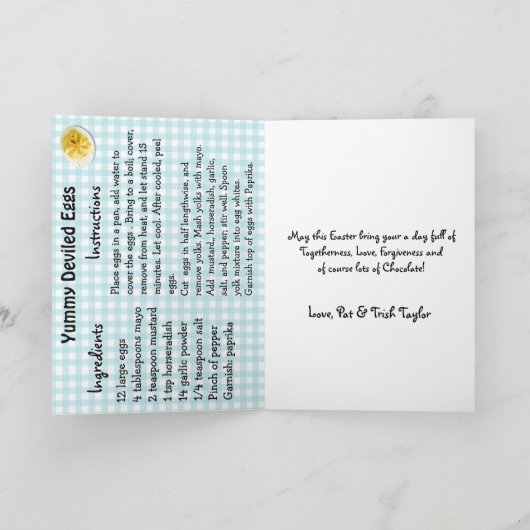 Yummy Deviled Eggs
Ingredients
12 large eggs
4 tablespoons mayo
2 teaspoon mustard
1 tsp horseradish
14 garlic powder
1/4 teaspoon salt
Pinch of pepper
Garnish: paprika
Instructions
Place eggs in a pan, add water to
cover the eggs . Bring to a boil; cover,
remove from heat and let stand 15
minutes. Let cool. After cooled, peel
eggs.
Cut eggs in half lengthwise, and
remove yolks. Mash yolks with mayo.
Add mustard, horseradish, garlic,
salt, and pepper; stir well. Spoon
yolk mixture into egg whites.
Garnish top of eggs with Paprika.
May this Easter bring your a day full of
Togetherness, Love, Forgiveness and
of course lots of Chocolate!
Love, Pat & Trish Taylor